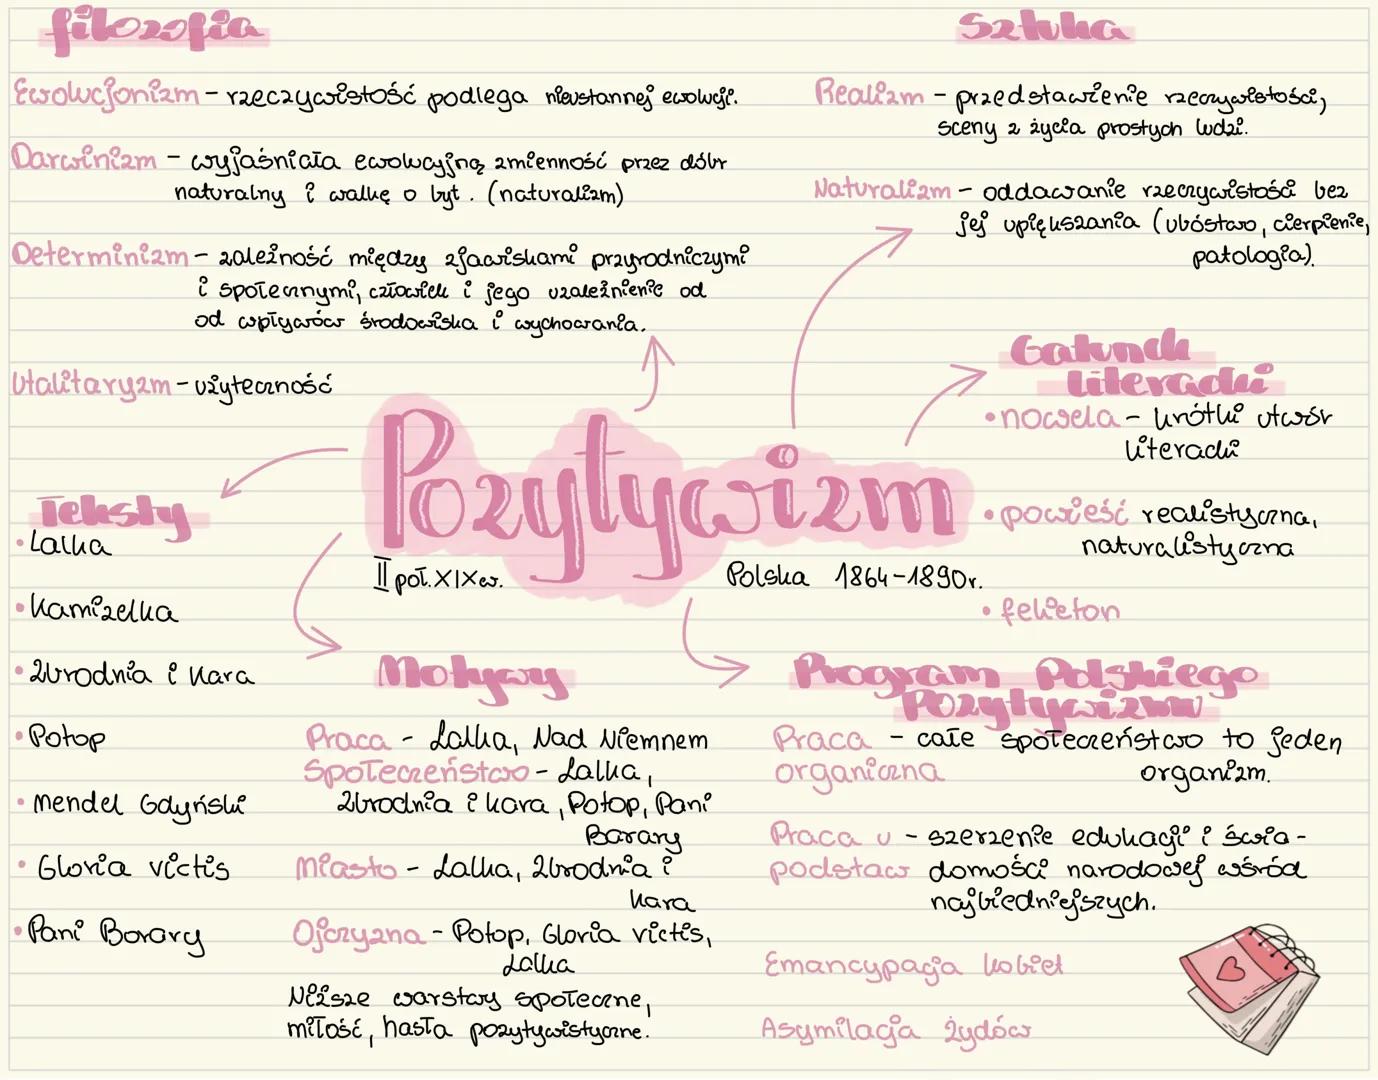 filozofia
Ewolucjonizm - rzeczywistość podlega nieustannej ewolucji.
Darwinizm - wyjaśniała ewolucyjną zmienność przez dobór
naturalny i walkę o byt. (naturalizm)
Determinizm - zależność między zjawiskami przyrodniczymi
i społecznymi, człowiek i jego uzależnienie od
od wpływów środowiska i wychowania.
Utalitaryzm - użyteczność
Sztuka
Realizm - przedstawienie rzeczywistości,
sceny z życia prostych ludzi.
Naturalizm - oddawanie rzeczywistości bez
jej upiększania (ubóstwo, cierpienie,
patologia).
Gatunki
literacki
• nowela - krótki utwór
literacki
• powieść realistyczna,
naturalistyczna
• felieton
Pozytywizm
II poł. XIX w.
Polska 1864-1890r.
Teksty
• Lalka
• Kamizelka
• Zbrodnia i kara
• Potop
• Mendel Gdyński
• Gloria victis
• Pani Bovary
Motywy
Praca - Lalka, Nad Niemnem
Społeczeństwo - Lalka,
Zbrodnia i kara, Potop, Pani
Bovary
Miasto - Lalka, Zbrodnia i
kara
Ojczyzna - Potop, Gloria victis,
Lalka
Niższe warstwy społeczne,
miłość, hasła pozytywistyczne.
Program Polskiego
Pozytywizmu
Praca - całe społeczeństwo to jeden
organiczna organizm.
Praca u - szerzenie edukacji i świa-
podstaw domości narodowej wśród
najbiedniejszych.
Emancypacja kobiet
Asymilacja Żydów